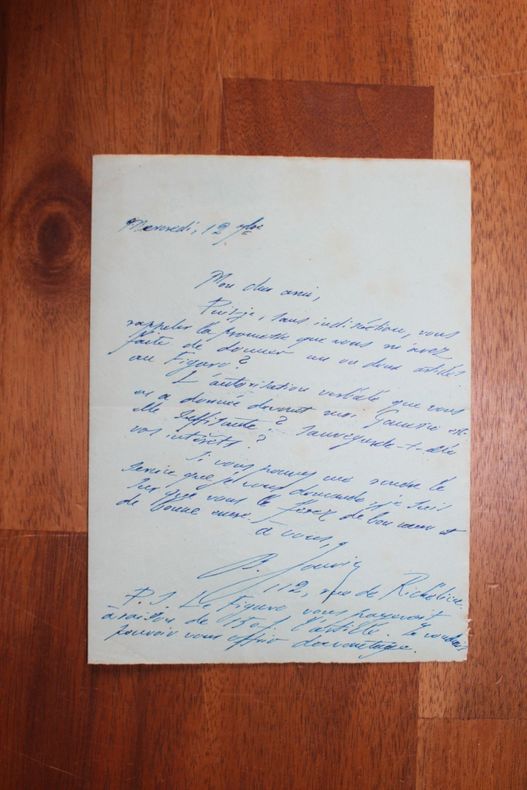 Mercredi, 12 7bre
Mon cher ami,
Puis-je, sans indiscrétion, vous
rappeler la promesse que vous m'avez
faite de donner un ou deux articles
au Figaro?
L'autorisation verbale que vous
en a donnée devant moi est-
elle suffisante? Sauvegarde-t-elle
vos intérêts?
Si vous pouvez me rendre le
service que je vous demande, je suis
sûr que vous le ferez de bon cœur et
de bonne
à vous,
112, rue de Richelieu
P. S. Le Figaro vous payerait
à raison de l'article. Je voudrais
pouvoir vous offrir davantage.